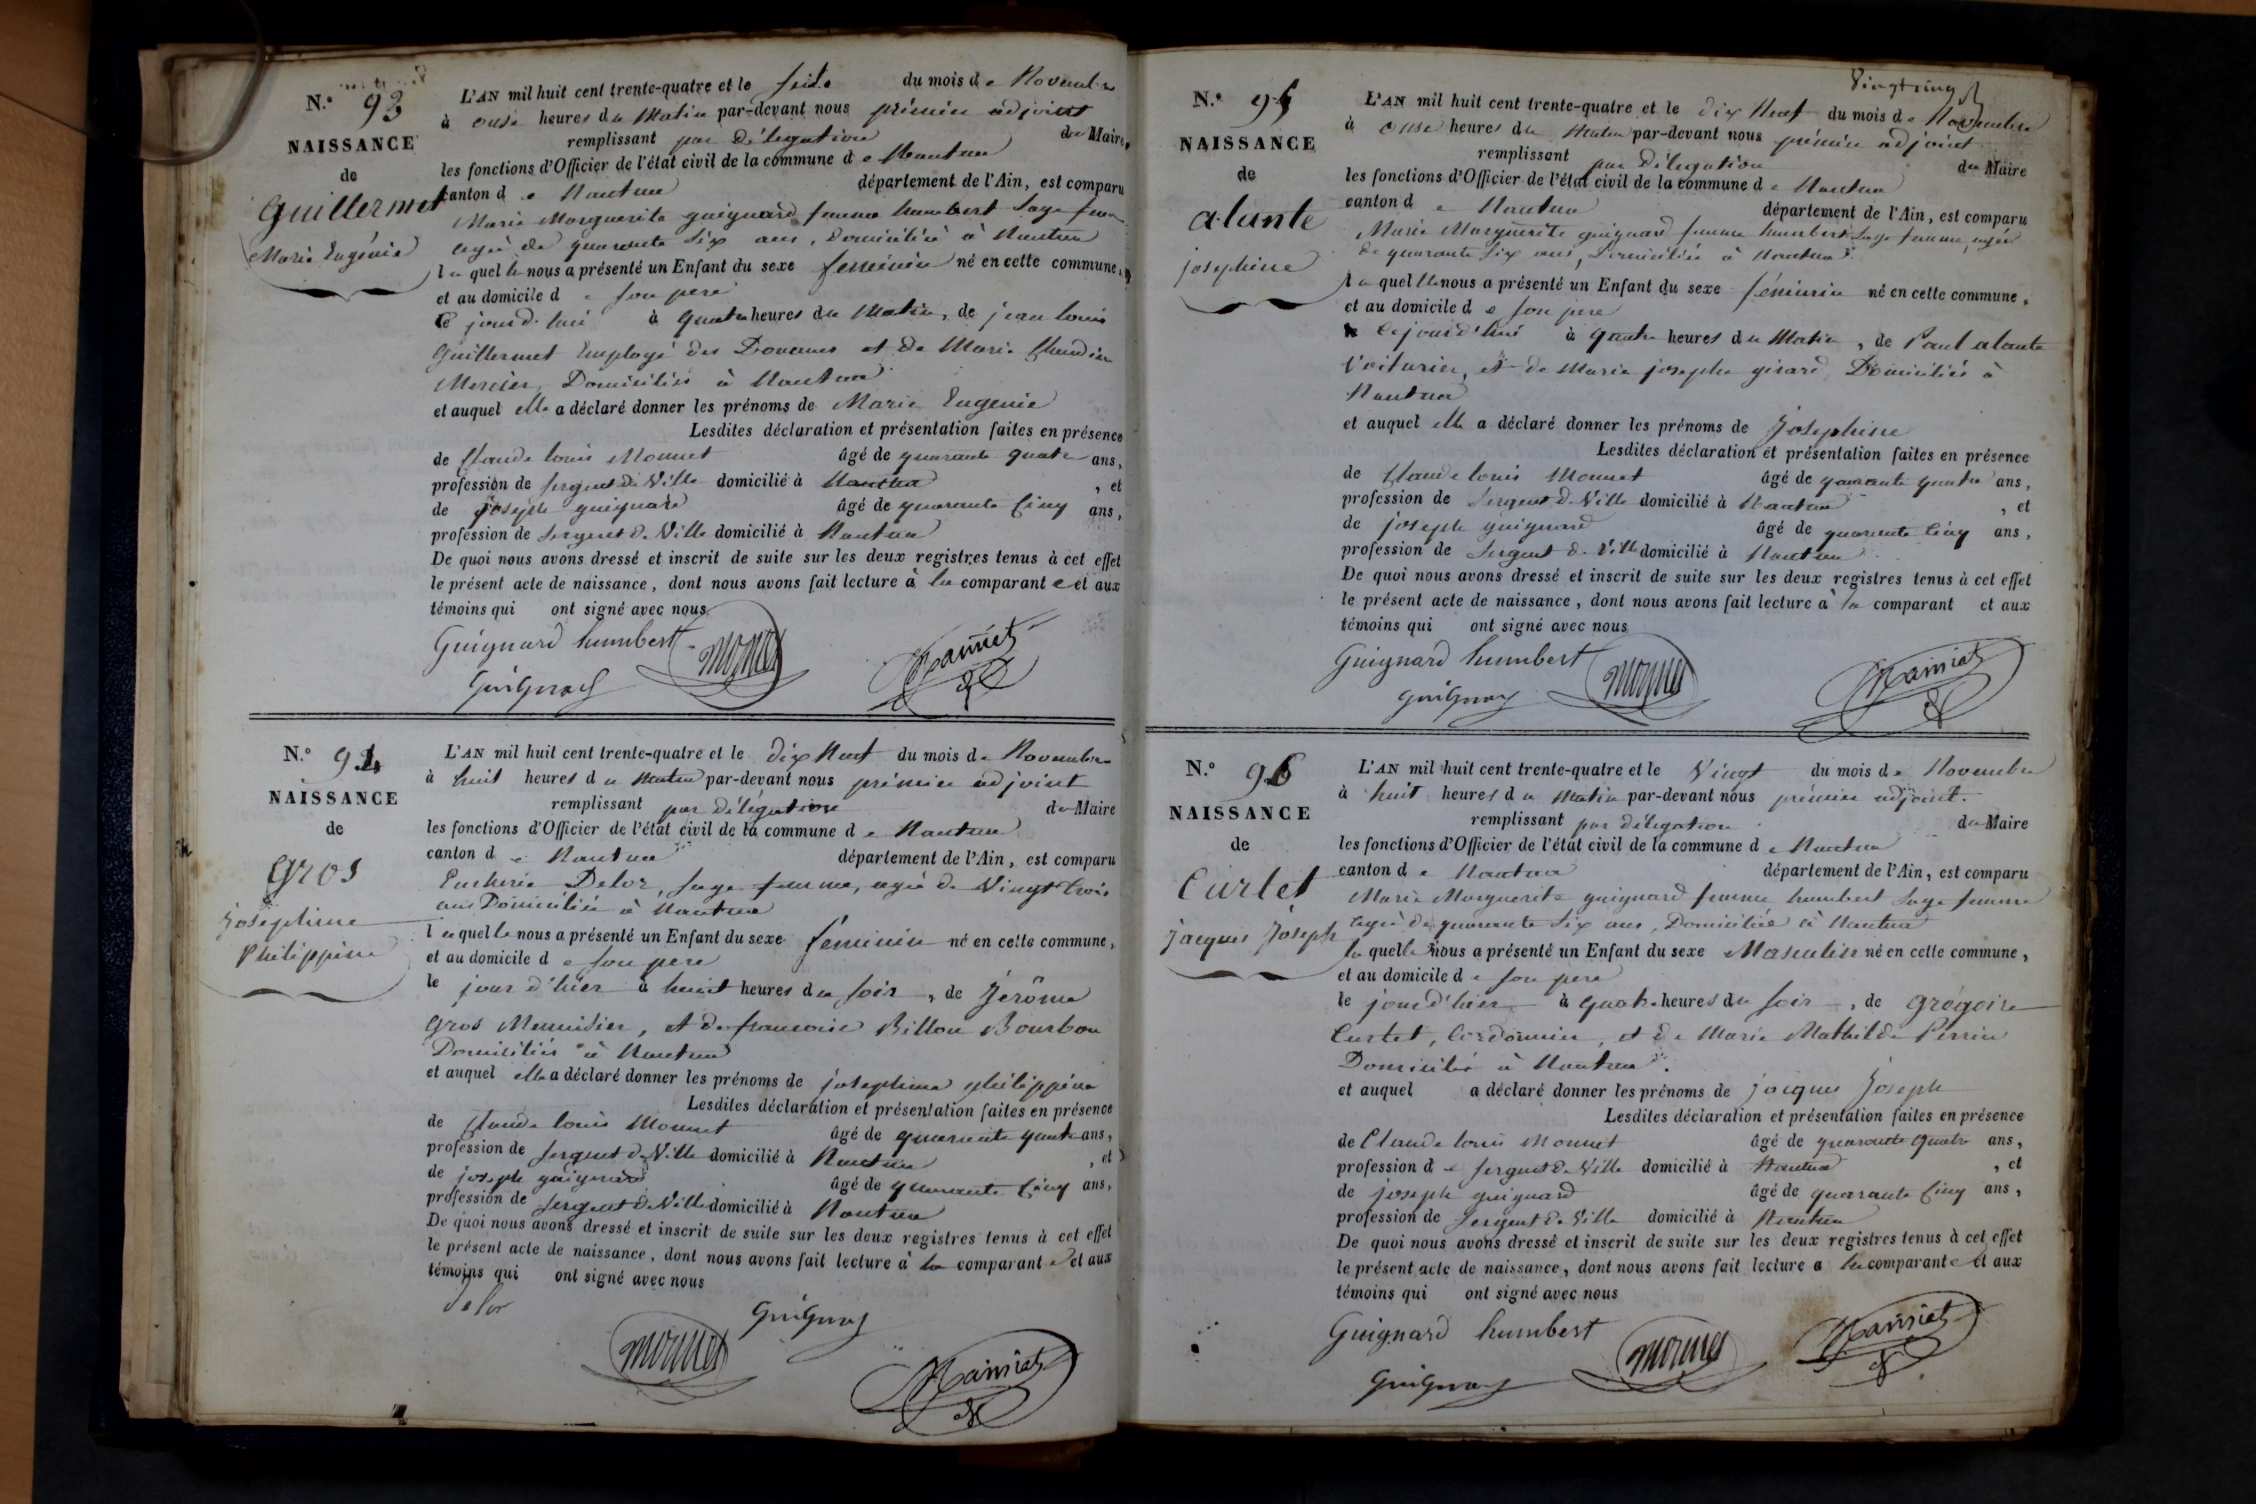 N.° 93
NAISSANCE
de
Guillermet
Marie Eugénie
L'AN mil huit cent trente-quatre et le seize du mois de Novembre
à onze heures du Matin par-devant nous prémier adjoint
remplissant par délégation du Maire,
les fonctions d'Officier de l'état civil de la commune de Nantua
canton de Nantua département de l'Ain, est comparu
Marie Marguerite guignard femme humbert Sage femme
agée de quarante Six ans, Domiciliée à Nantua
laquelle nous a présenté un Enfant du sexe féminin né en cette commune,
et au domicile de Son pere
Ce jourd'hui à quatre heures du Matin, de jean louis
Guillermet Employé des Douanes et de Marie Claudine
Mercier, Domiciliés à Nantua
et auquel elle a déclaré donner les prénoms de Marie Eugenie
Lesdites déclaration et présentation faites en présence
de Claude louis Monnet âgé de quarante quatre ans,
profession de Sergent de Ville domicilié à Nantua, et
de joseph guignard âgé de quarante Cinq ans,
profession de Sergent de Ville domicilié à Nantua
De quoi nous avons dressé et inscrit de suite sur les deux registres tenus à cet effet
le présent acte de naissance, dont nous avons fait lecture à la comparante et aux
témoins qui ont signé avec nous
Guignard humbert
monnet
Guignard
N.° 94
NAISSANCE
de
Gros
Josephine
Philippine
L'AN mil huit cent trente-quatre et le dix Neuf du mois de Novembre
à huit heures du Matin par-devant nous prémier adjoint
remplissant par délégation du Maire
les fonctions d'Officier de l'état civil de la commune de Nantua
canton de Nantua département de l'Ain, est comparu
Delor, Sage femme, agée de Vingt trois
ans Domiciliée à Nantua
laquelle nous a présenté un Enfant du sexe féminin né en cette commune,
et au domicile de Son pere
le jour d'hier à huit heures du Soir, de Jérôme
Gros Menuisier, et de francoise Billon Bourbon
Domiciliés à Nantua
et auquel elle a déclaré donner les prénoms de josephine philippine
Lesdites déclaration et présentation faites en présence
de Claude louis Monnet âgé de quarante quatre ans,
profession de Sergent de Ville domicilié à Nantua, et
de joseph guignard âgé de quarante Cinq ans,
profession de Sergent de Ville domicilié à Nantua
De quoi nous avons dressé et inscrit de suite sur les deux registres tenus à cet effet
le présent acte de naissance, dont nous avons fait lecture à la comparante et aux
témoins qui ont signé avec nous
Delor
Guignard
monnet
Vingt cinq
N.° 95
NAISSANCE
de
alante
josephine
L'AN mil huit cent trente-quatre et le dix Neuf du mois de Novembre
à onze heures du Matin par-devant nous prémier adjoint
remplissant par délégation du Maire
les fonctions d'Officier de l'état civil de la commune de Nantua
canton de Nantua département de l'Ain, est comparu
Marie Marguerite guignard femme humbert Sage femme, agée
de quarante Six ans, Domiciliée à Nantua
laquelle nous a présenté un Enfant du sexe féminin né en cette commune,
et au domicile de Son pere
Cejourd'hui à quatre heures du Matin, de Paul alante
Voiturier, et de Marie josephe girard, Domiciliés à
Nantua
et auquel elle a déclaré donner les prénoms de Josephine
Lesdites déclaration et présentation faites en présence
de Claude louis Monnet âgé de quarante quatre ans,
profession de Sergent de Ville domicilié à Nantua, et
de joseph guignard âgé de quarante Cinq ans,
profession de Sergent de Ville domicilié à Nantua
De quoi nous avons dressé et inscrit de suite sur les deux registres tenus à cet effet
le présent acte de naissance, dont nous avons fait lecture à la comparant et aux
témoins qui ont signé avec nous
Guignard humbert
monnet
Guignard
N.° 96
NAISSANCE
de
Curtet
jacques Joseph
L'AN mil huit cent trente-quatre et le Vingt du mois de Novembre
à huit heures du Matin par-devant nous prémier adjoint.
remplissant par délégation du Maire
les fonctions d'Officier de l'état civil de la commune de Nantua
canton de Nantua département de l'Ain, est comparu
Marie Marguerite guignard femme humbert Sage femme
agée de quarante Six ans, Domiciliée à Nantua
laquelle nous a présenté un Enfant du sexe Masculin né en cette commune,
et au domicile de Son pere
le jour d'hier à quatre heures du Soir, de grégoire
Curtet, Cordonnier, et de Marie Mathilde Perrin
Domiciliés à Nantua.
et auquel a déclaré donner les prénoms de jacques Joseph
Lesdites déclaration et présentation faites en présence
de Claude louis Monnet âgé de quarante quatre ans,
profession de Sergent de Ville domicilié à Nantua, et
de joseph guignard âgé de quarante Cinq ans,
profession de Sergent de Ville domicilié à Nantua
De quoi nous avons dressé et inscrit de suite sur les deux registres tenus à cet effet
le présent acte de naissance, dont nous avons fait lecture à la comparante et aux
témoins qui ont signé avec nous
Guignard humbert
monnet
Guignard